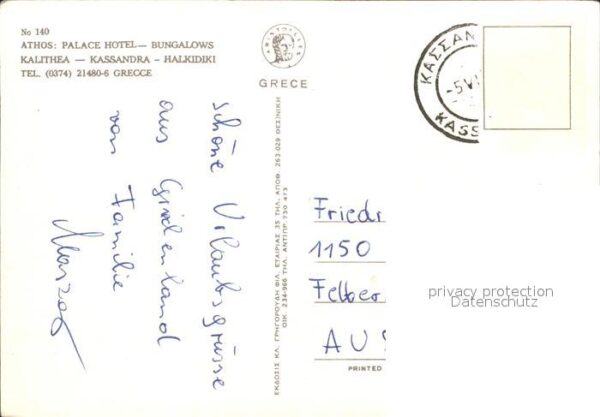 No 140
ATHOS: PALACE HOTEL — BUNGALOWS
KALITHEA — KASSANDRA - HALKIDIKI
TEL. (0374) 21480-6 GRECCE
GRECE
ΚΑΣΣΑΝ
-5 V
KASS
schöne Urlaubsgrüsse
aus Griechenland
von Familie
ΕΚΔΟΣΙΣ ΚΛ. ΓΡΗΓΟΡΟΥΔΗ ΦΙΛ. ΕΤΑΙΡΙΑΣ 35 ΤΗΛ. ΑΠΟΘ. 263-029 ΘΕΣ/ΝΙΚΗ
ΟΙΚ. 234-966 ΤΗΛ. ΑΝΤΙΠΡ. 730 473
Friedr
1150
Felber
AUS
PRINTED
privacy protection
Datenschutz